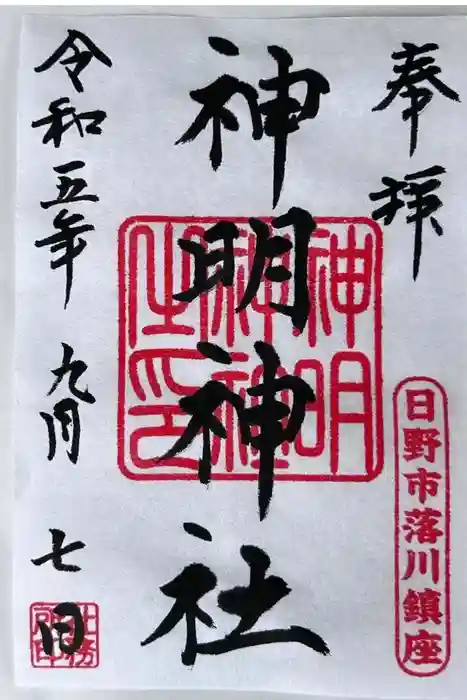 奉拝
日野市落川鎮座
神明神社
神明
神社
之印
令和五年 九月 七日
社務所印